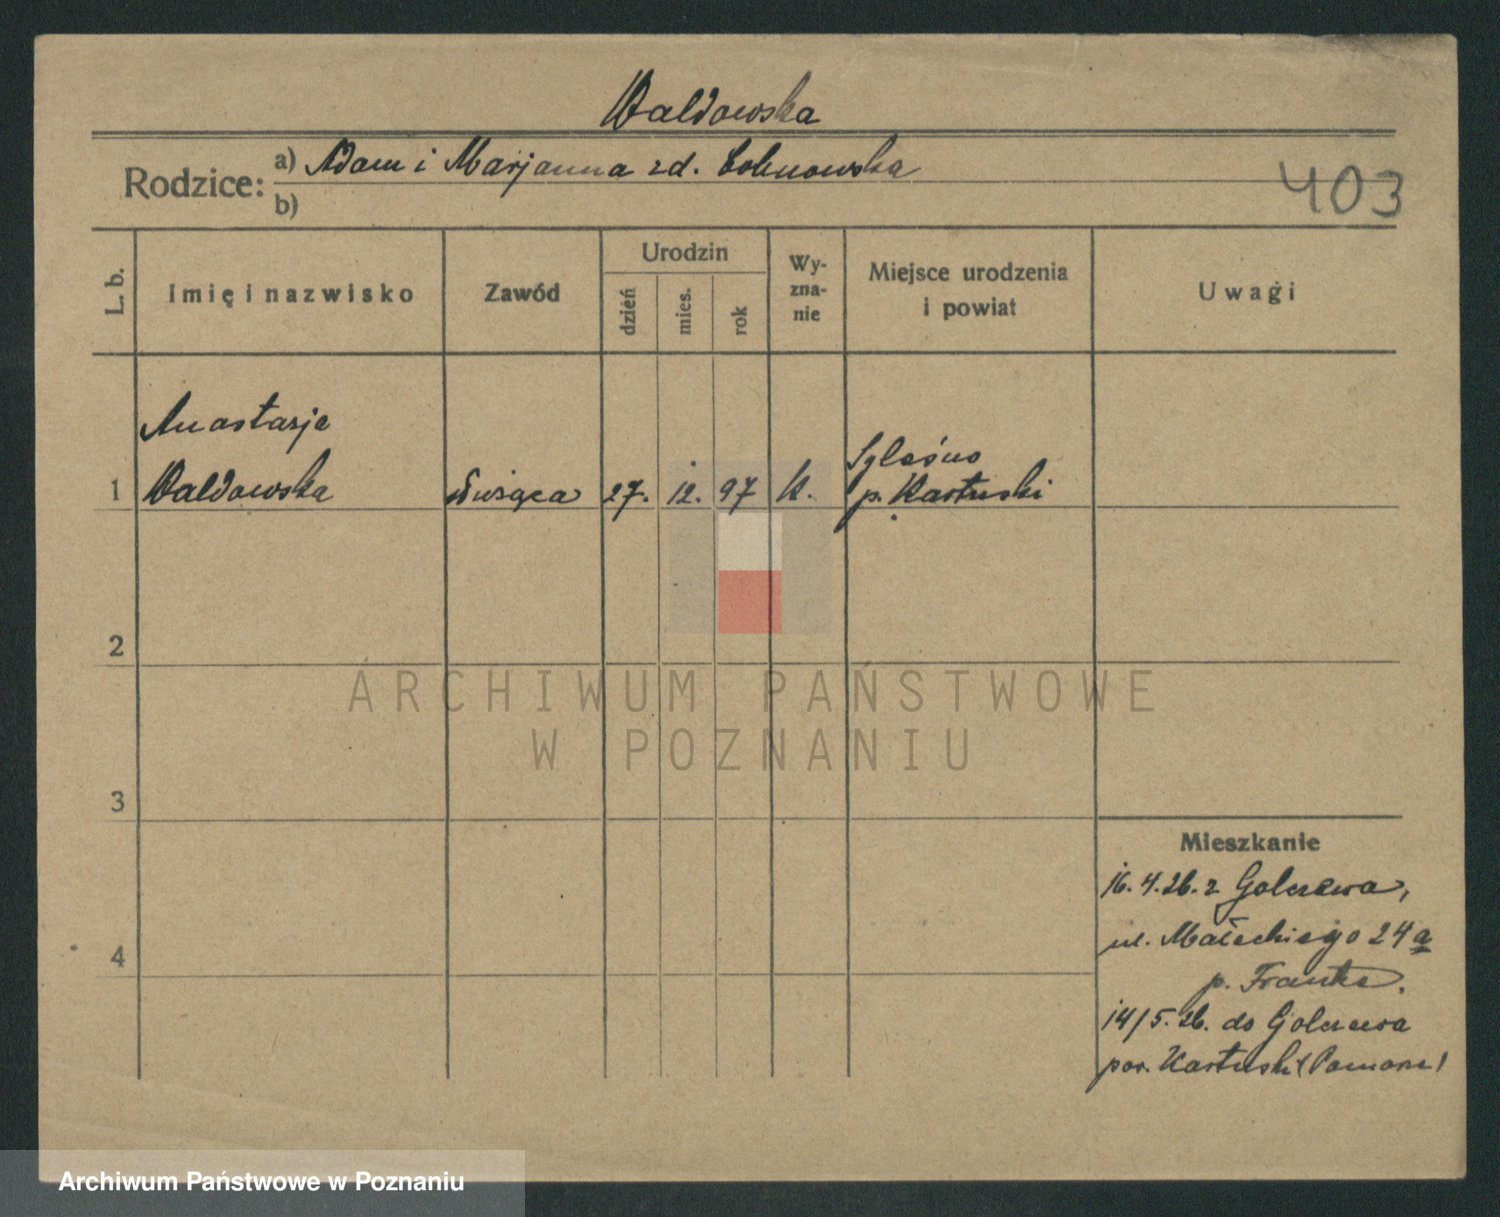 Waldowska
Rodzice: a) Adam i Marjanna zd.
b)
403
L. b.
Imię i nazwisko
Zawód
Urodzin
dzień
mies.
rok
Wy-
zna-
nie
Miejsce urodzenia
i powiat
Uwagi
Anastazja
1 Waldowska 27. 12. 97 k.
p. Kartuski
2
3
4
Mieszkanie
16. 4. 26. z Golczewa,
ul. Małeckiego 24a
p. Franke.
14/5. 26. do Golczewa
pow. Kartuski (Pomorze)
ARCHIWUM PAŃSTWOWE
W POZNANIU
Archiwum Państwowe w Poznaniu